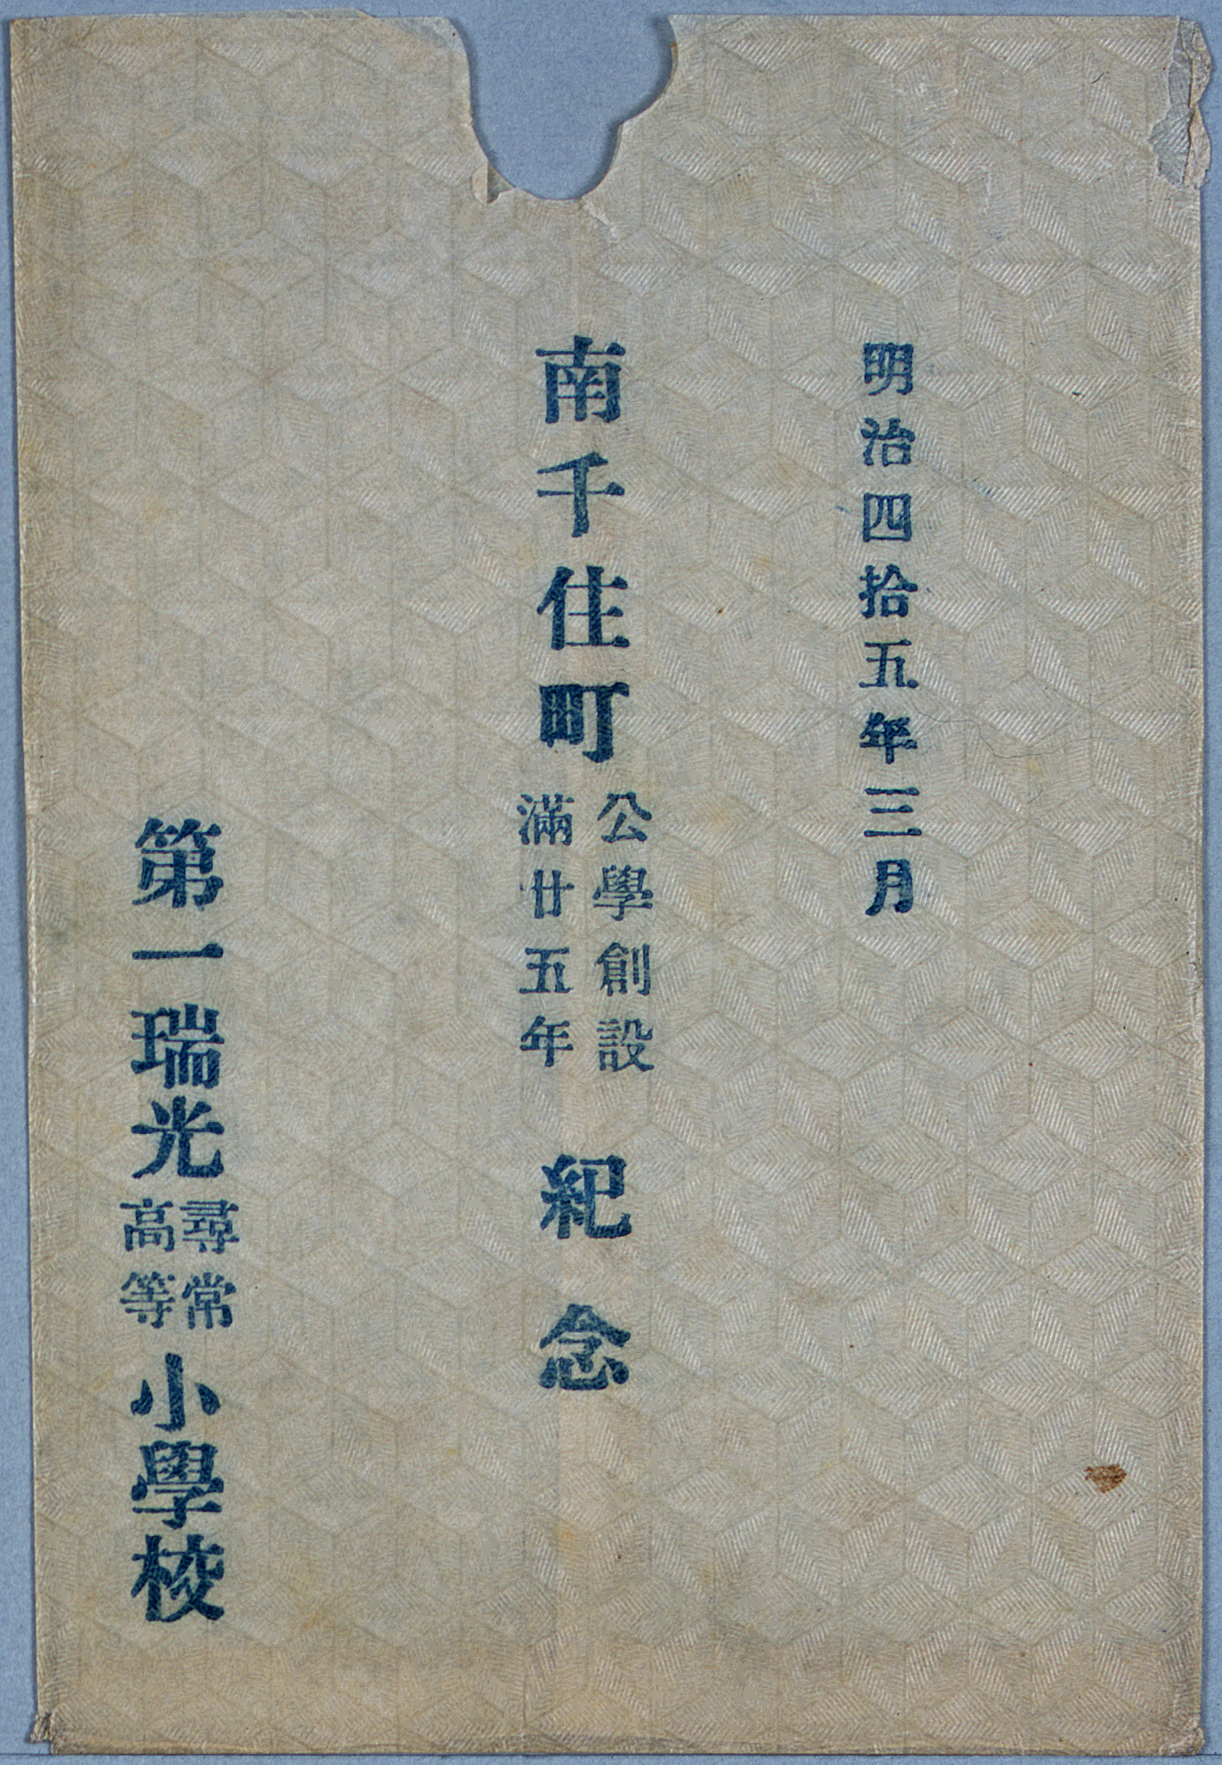 明治四拾五年三月
南千住町
公學創設
滿廿五年
紀念
第一瑞光
尋常
高等
小學校